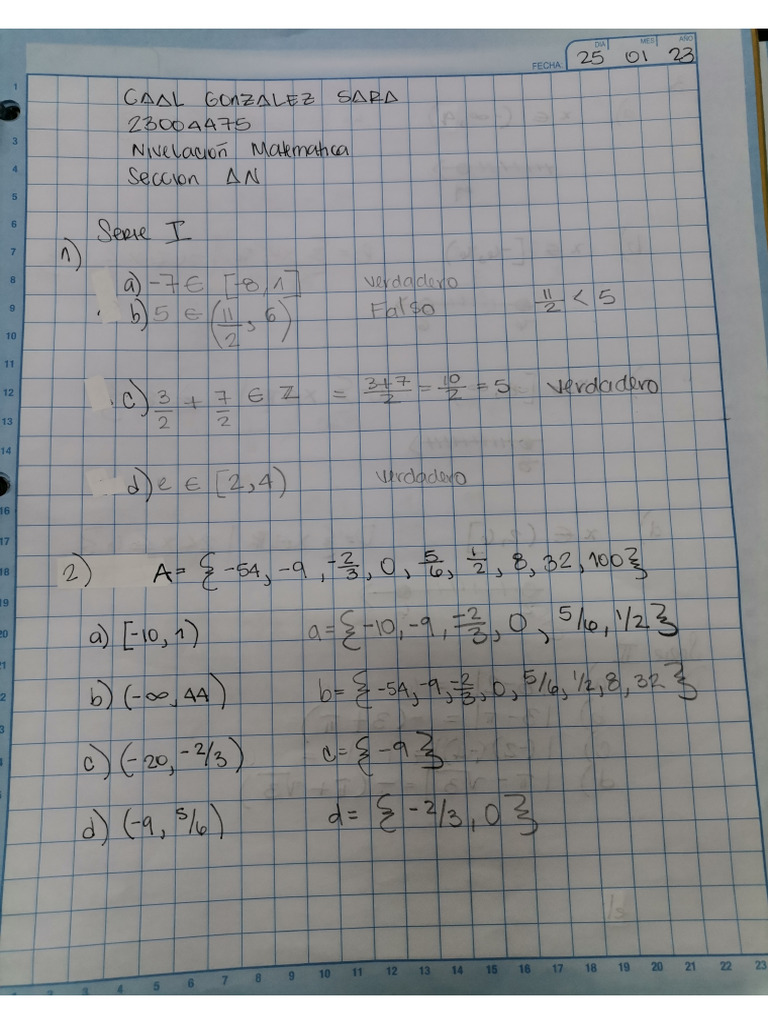 DIA MES AÑO
FECHA: 25 01 23
CAAL GONZALEZ SARA
23004475
Nivelación Matematica
Seccion AN
Serie I
1)
a) -7 ∈ [-8, 1] verdadero
b) 5 ∈ (11/2, 6) Falso 11/2 < 5
c) 3/2 + 7/2 ∈ Z = 3+7/2 = 10/2 = 5 verdadero
d) e ∈ [2,4) verdadero
2) A = { -54, -9, -2/3, 0, 5/6, 1/2, 8, 32, 100 }
a) [-10, 1) a = { -10, -9, -2/3, 0, 5/6, 1/2 }
b) (-∞, 44) b = { -54, -9, -2/3, 0, 5/6, 1/2, 8, 32 }
c) (-20, -2/3) c = { -9 }
d) (-9, 5/6) d = { -2/3, 0 }
1 3 4 5 6 7 8 9 10 11 12 13 14 16 17 18 19 20 21
3 4 5 6 7 8 9 10 11 12 13 14 15 16 17 18 19 20 21 22 23